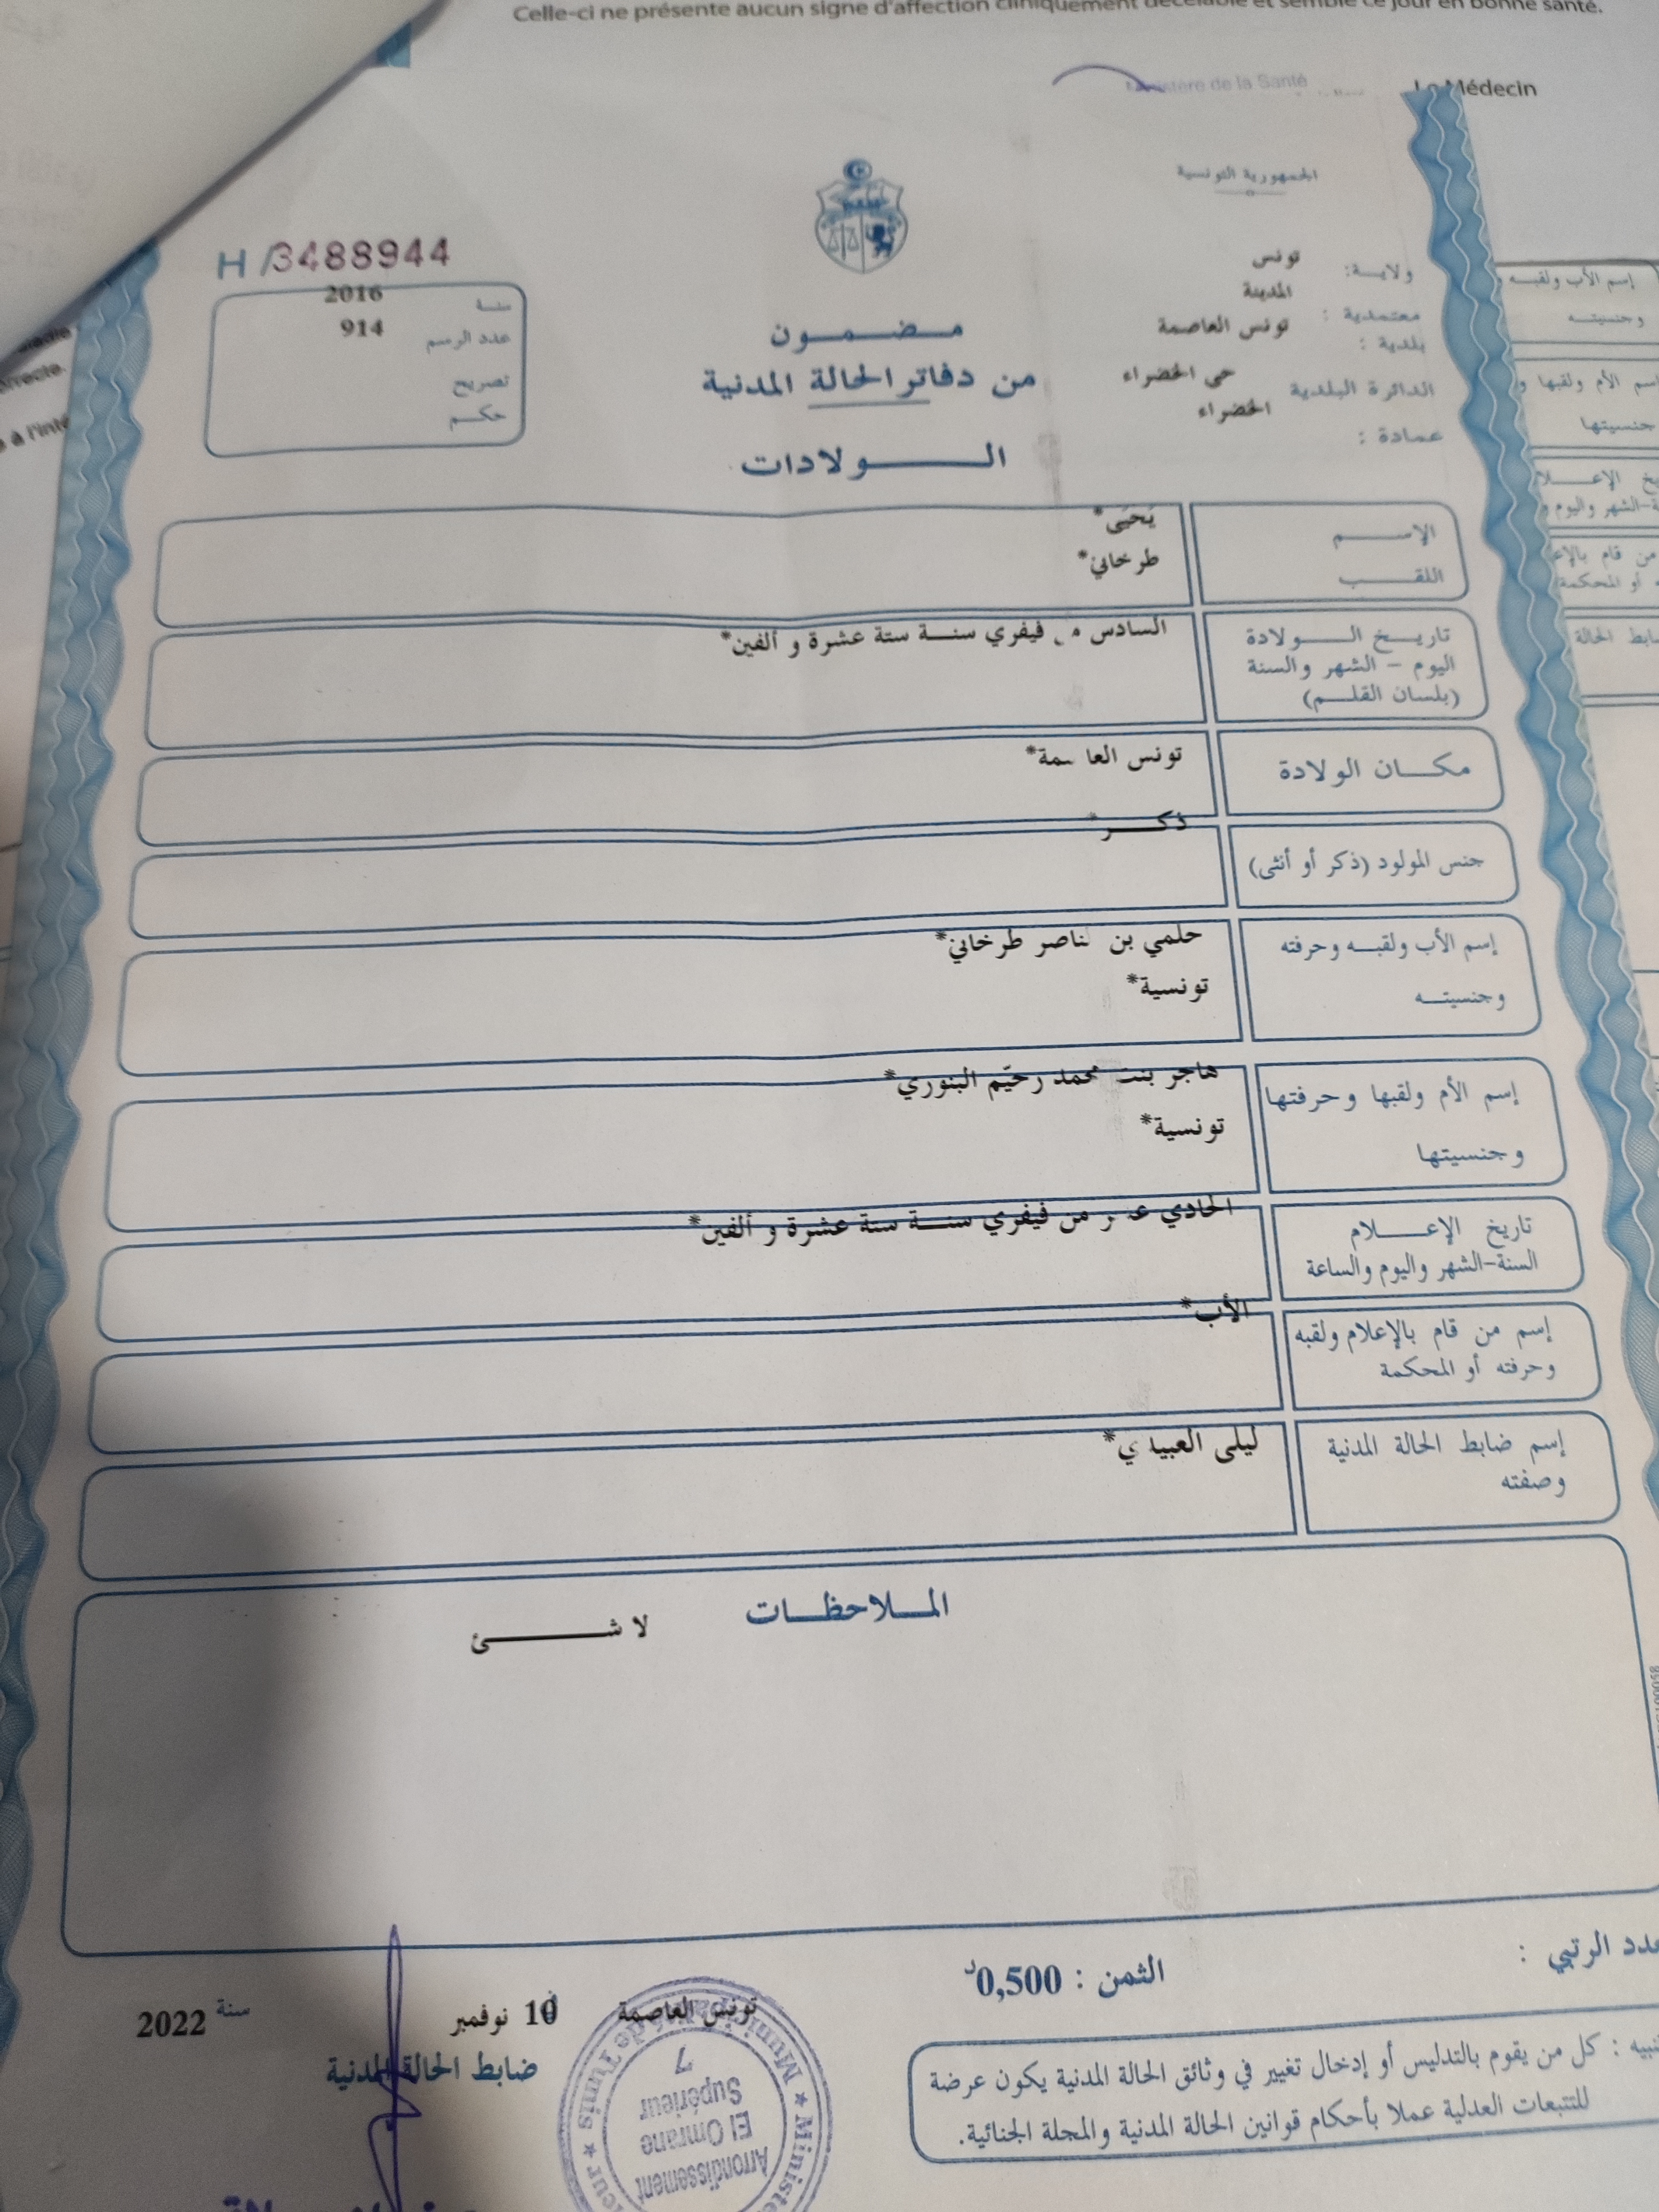 Celle-ci ne présente aucun signe d'affection cliniquement décelable et semble ce jour en bonne santé.
Ministère de la Santé
Le Médecin
الجمهورية التونسية
ولاية: تونس
معتمدية : المدينة
بلدية : تونس العاصمة
الدائرة البلدية حي الخضراء
عمادة : الخضراء
H/3488944
سنة 2016
عدد الرسم 914
تصريح
حكم
مضمون
من دفاتر الحالة المدنية
الولادات
الإسم يَحيَى*
اللقب طرخاني*
تاريخ الولادة السادس فيفري سنة ستة عشرة و ألفين*
اليوم – الشهر والسنة
(بلسان القلم)
مكان الولادة تونس العاصمة*
ذكر*
جنس المولود (ذكر أو أنثى)
إسم الأب ولقبه وحرفته حلمي بن لناصر طرخاني*
وجنسيته تونسية*
إسم الأم ولقبها وحرفتها هاجر بنت محمد رحيّم البنوري*
وجنسيتها تونسية*
تاريخ الإعلام الحادي عشر من فيفري سنة ستة عشرة و ألفين*
السنة-الشهر واليوم والساعة
الأب*
إسم من قام بالإعلام ولقبه
وحرفته أو المحكمة
إسم ضابط الحالة المدنية ليلى العبيدي*
وصفته
الملاحظات
لا شئ
عدد الرتبي :
الثمن : 0,500د
تونس العاصمة 10 نوفمبر سنة 2022
ضابط الحالة المدنية
تنبيه : كل من يقوم بالتدليس أو إدخال تغيير في وثائق الحالة المدنية يكون عرضة
للتتبعات العدلية عملا بأحكام قوانين الحالة المدنية والمجلة الجنائية.
Arrondissement
El Omrane
Supérieur
7
إسم الأب ولقبه
وجنسيته
إسم الأم ولقبها
جنسيتها